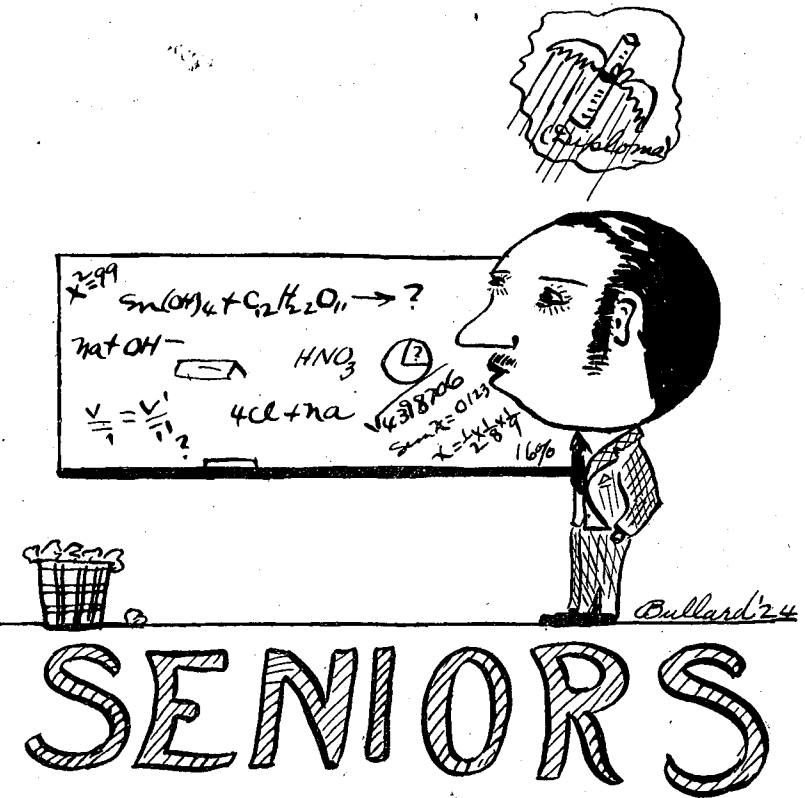 (Diploma)
x²=99
Sn(OH)₄+C₁₂H₂₂O₁₁→?
na+OH—
HNO₃
?
V/1=V'/11?
4Cl+na
√4398706
Sem x=0123
x=1/2×1/8×1/9
16%
Bullard '24
SENIORS